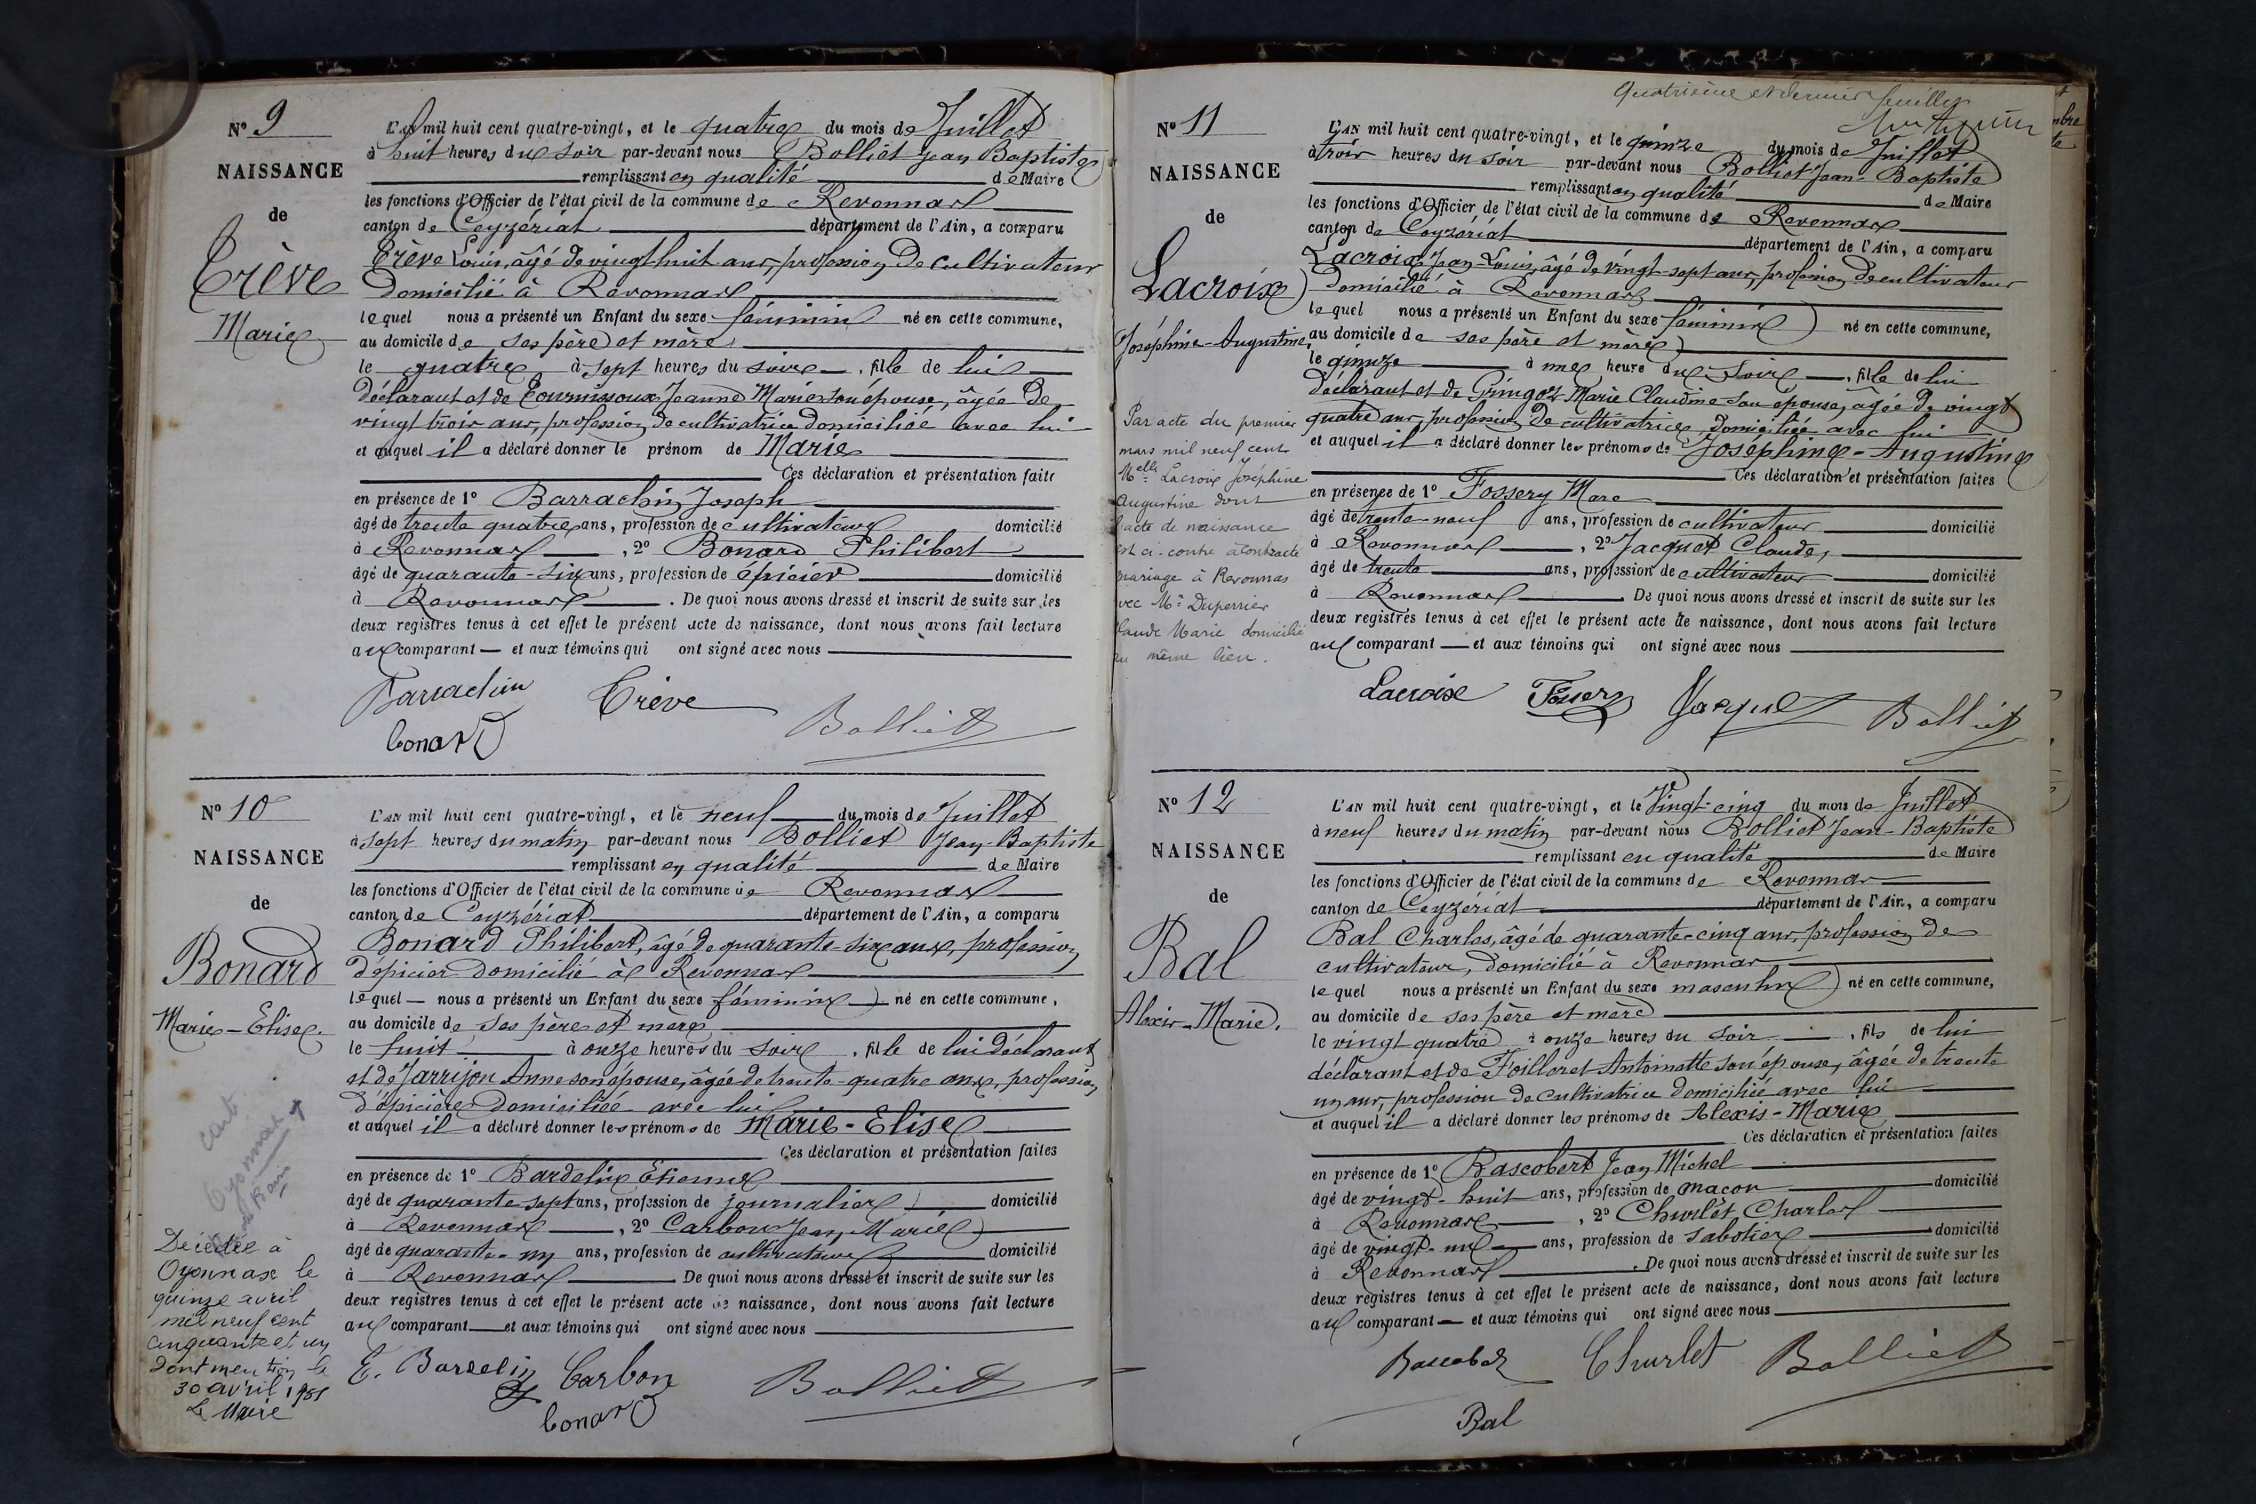 N° 9
NAISSANCE
de
Trève
Marie
L'AN mil huit cent quatre-vingt, et le quatre du mois de Juillet
à huit heures du soir par-devant nous Bolliet Jean Baptiste
remplissant en qualité de Maire
les fonctions d'Officier de l'état civil de la commune de Revonnas
canton de Ceyzériat département de l'Ain, a comparu
Trève Louis, âgé de vingt-huit ans, profession de cultivateur
domicilié à Revonnas
lequel nous a présenté un Enfant du sexe féminin né en cette commune,
au domicile de ses père et mère
le quatre à sept heures du soir, fille de lui
déclarant et de Tournissoux Jeanne Marie son épouse, âgée de
vingt trois ans, profession de cultivatrice domiciliée avec lui
et auquel il a déclaré donner le prénom de Marie
Ces déclaration et présentation faites
en présence de 1° Barrachin Joseph
âgé de trente quatre ans, profession de cultivateur domicilié
à Revonnas, 2° Bonard Philibert
âgé de quarante-six ans, profession de épicier domicilié
à Revonnas. De quoi nous avons dressé et inscrit de suite sur les
deux registres tenus à cet effet le présent acte de naissance, dont nous avons fait lecture
aux comparant et aux témoins qui ont signé avec nous
Barrachin Trève
Bonard Bolliet
N° 10
NAISSANCE
de
Bonard
Marie-Elise
L'AN mil huit cent quatre-vingt, et le neuf du mois de Juillet
à sept heures du matin par-devant nous Bolliet Jean-Baptiste
remplissant en qualité de Maire
les fonctions d'Officier de l'état civil de la commune de Revonnas
canton de Ceyzériat département de l'Ain, a comparu
Bonard Philibert, âgé de quarante-six ans, profession
d'épicier domicilié à Revonnas
lequel nous a présenté un Enfant du sexe féminin né en cette commune,
au domicile de ses père et mère
le huit à onze heures du soir, fille de lui déclarant
et de Jarrijon Anne son épouse, âgée de trente-quatre ans, profession
d'épicière domiciliée avec lui
et auquel il a déclaré donner les prénoms de Marie-Elise
Ces déclaration et présentation faites
en présence de 1° Bardelin Etienne
âgé de quarante sept ans, profession de journalier domicilié
à Revonnas, 2° Carbon Jean Marie
âgé de quarante-un ans, profession de cultivateur domicilié
à Revonnas. De quoi nous avons dressé et inscrit de suite sur les
deux registres tenus à cet effet le présent acte de naissance, dont nous avons fait lecture
aux comparant et aux témoins qui ont signé avec nous
Oyonnax
Décédée à
Oyonnax le
quinze avril
mil neuf cent
cinquante et un
Dont mention le
30 avril 1951
Le Maire
E. Bardelin Carbon
Bonard Bolliet
Quatrième et dernier feuillet
N° 11
NAISSANCE
de
Lacroix
Joséphine-Augustine
L'AN mil huit cent quatre-vingt, et le quinze du mois de Juillet
à trois heures du soir par-devant nous Bolliet Jean-Baptiste
remplissant en qualité de Maire
les fonctions d'Officier de l'état civil de la commune de Revonnas
canton de Ceyzériat département de l'Ain, a comparu
Lacroix Jean-Louis, âgé de vingt-sept ans, profession de cultivateur
domicilié à Revonnas
lequel nous a présenté un Enfant du sexe féminin né en cette commune,
au domicile de ses père et mère
le quinze à une heure du soir, fille de lui
déclarant et de Pingoz Marie Claudine son épouse, âgée de vingt
quatre ans, profession de cultivatrice, domiciliée avec lui
et auquel il a déclaré donner les prénoms de Joséphine-Augustine
Ces déclaration et présentation faites
en présence de 1° Fossery Marc
âgé de trente-neuf ans, profession de cultivateur domicilié
à Revonnas, 2° Jacquet Claude,
âgé de trente ans, profession de cultivateur domicilié
à Revonnas. De quoi nous avons dressé et inscrit de suite sur les
deux registres tenus à cet effet le présent acte de naissance, dont nous avons fait lecture
aux comparant et aux témoins qui ont signé avec nous
Par acte du premier
mars mil neuf cent
Melle Lacroix Joséphine
Augustine dont
l'acte de naissance
est ci-contre à contracté
mariage à Revonnas
avec Mr Duperrier
Claude Marie domicilié
au même lieu.
Lacroix Fossery Jacquet Bolliet
N° 12
NAISSANCE
de
Bal
Alexis-Marie.
L'AN mil huit cent quatre-vingt, et le Vingt-cinq du mois de Juillet
à neuf heures du matin par-devant nous Bolliet Jean-Baptiste
remplissant en qualité de Maire
les fonctions d'Officier de l'état civil de la commune de Revonnas
canton de Ceyzériat département de l'Ain, a comparu
Bal Charles, âgé de quarante-cinq ans, profession de
cultivateur, domicilié à Revonnas,
lequel nous a présenté un Enfant du sexe masculin né en cette commune,
au domicile de ses père et mère
le vingt quatre à onze heures du soir, fils de lui
déclarant et de Foilleret Antoinette son épouse, âgée de trente
un ans, profession de cultivatrice domiciliée avec lui
et auquel il a déclaré donner les prénoms de Alexis-Marie
Ces déclaration et présentation faites
en présence de 1° Rascobert Jean Michel
âgé de vingt-huit ans, profession de maçon domicilié
à Revonnas, 2° Churlet Charles
âgé de vingt-un ans, profession de sabotier domicilié
à Revonnas. De quoi nous avons dressé et inscrit de suite sur les
deux registres tenus à cet effet le présent acte de naissance, dont nous avons fait lecture
aux comparant et aux témoins qui ont signé avec nous
Rascobert Churlet Bolliet
Bal